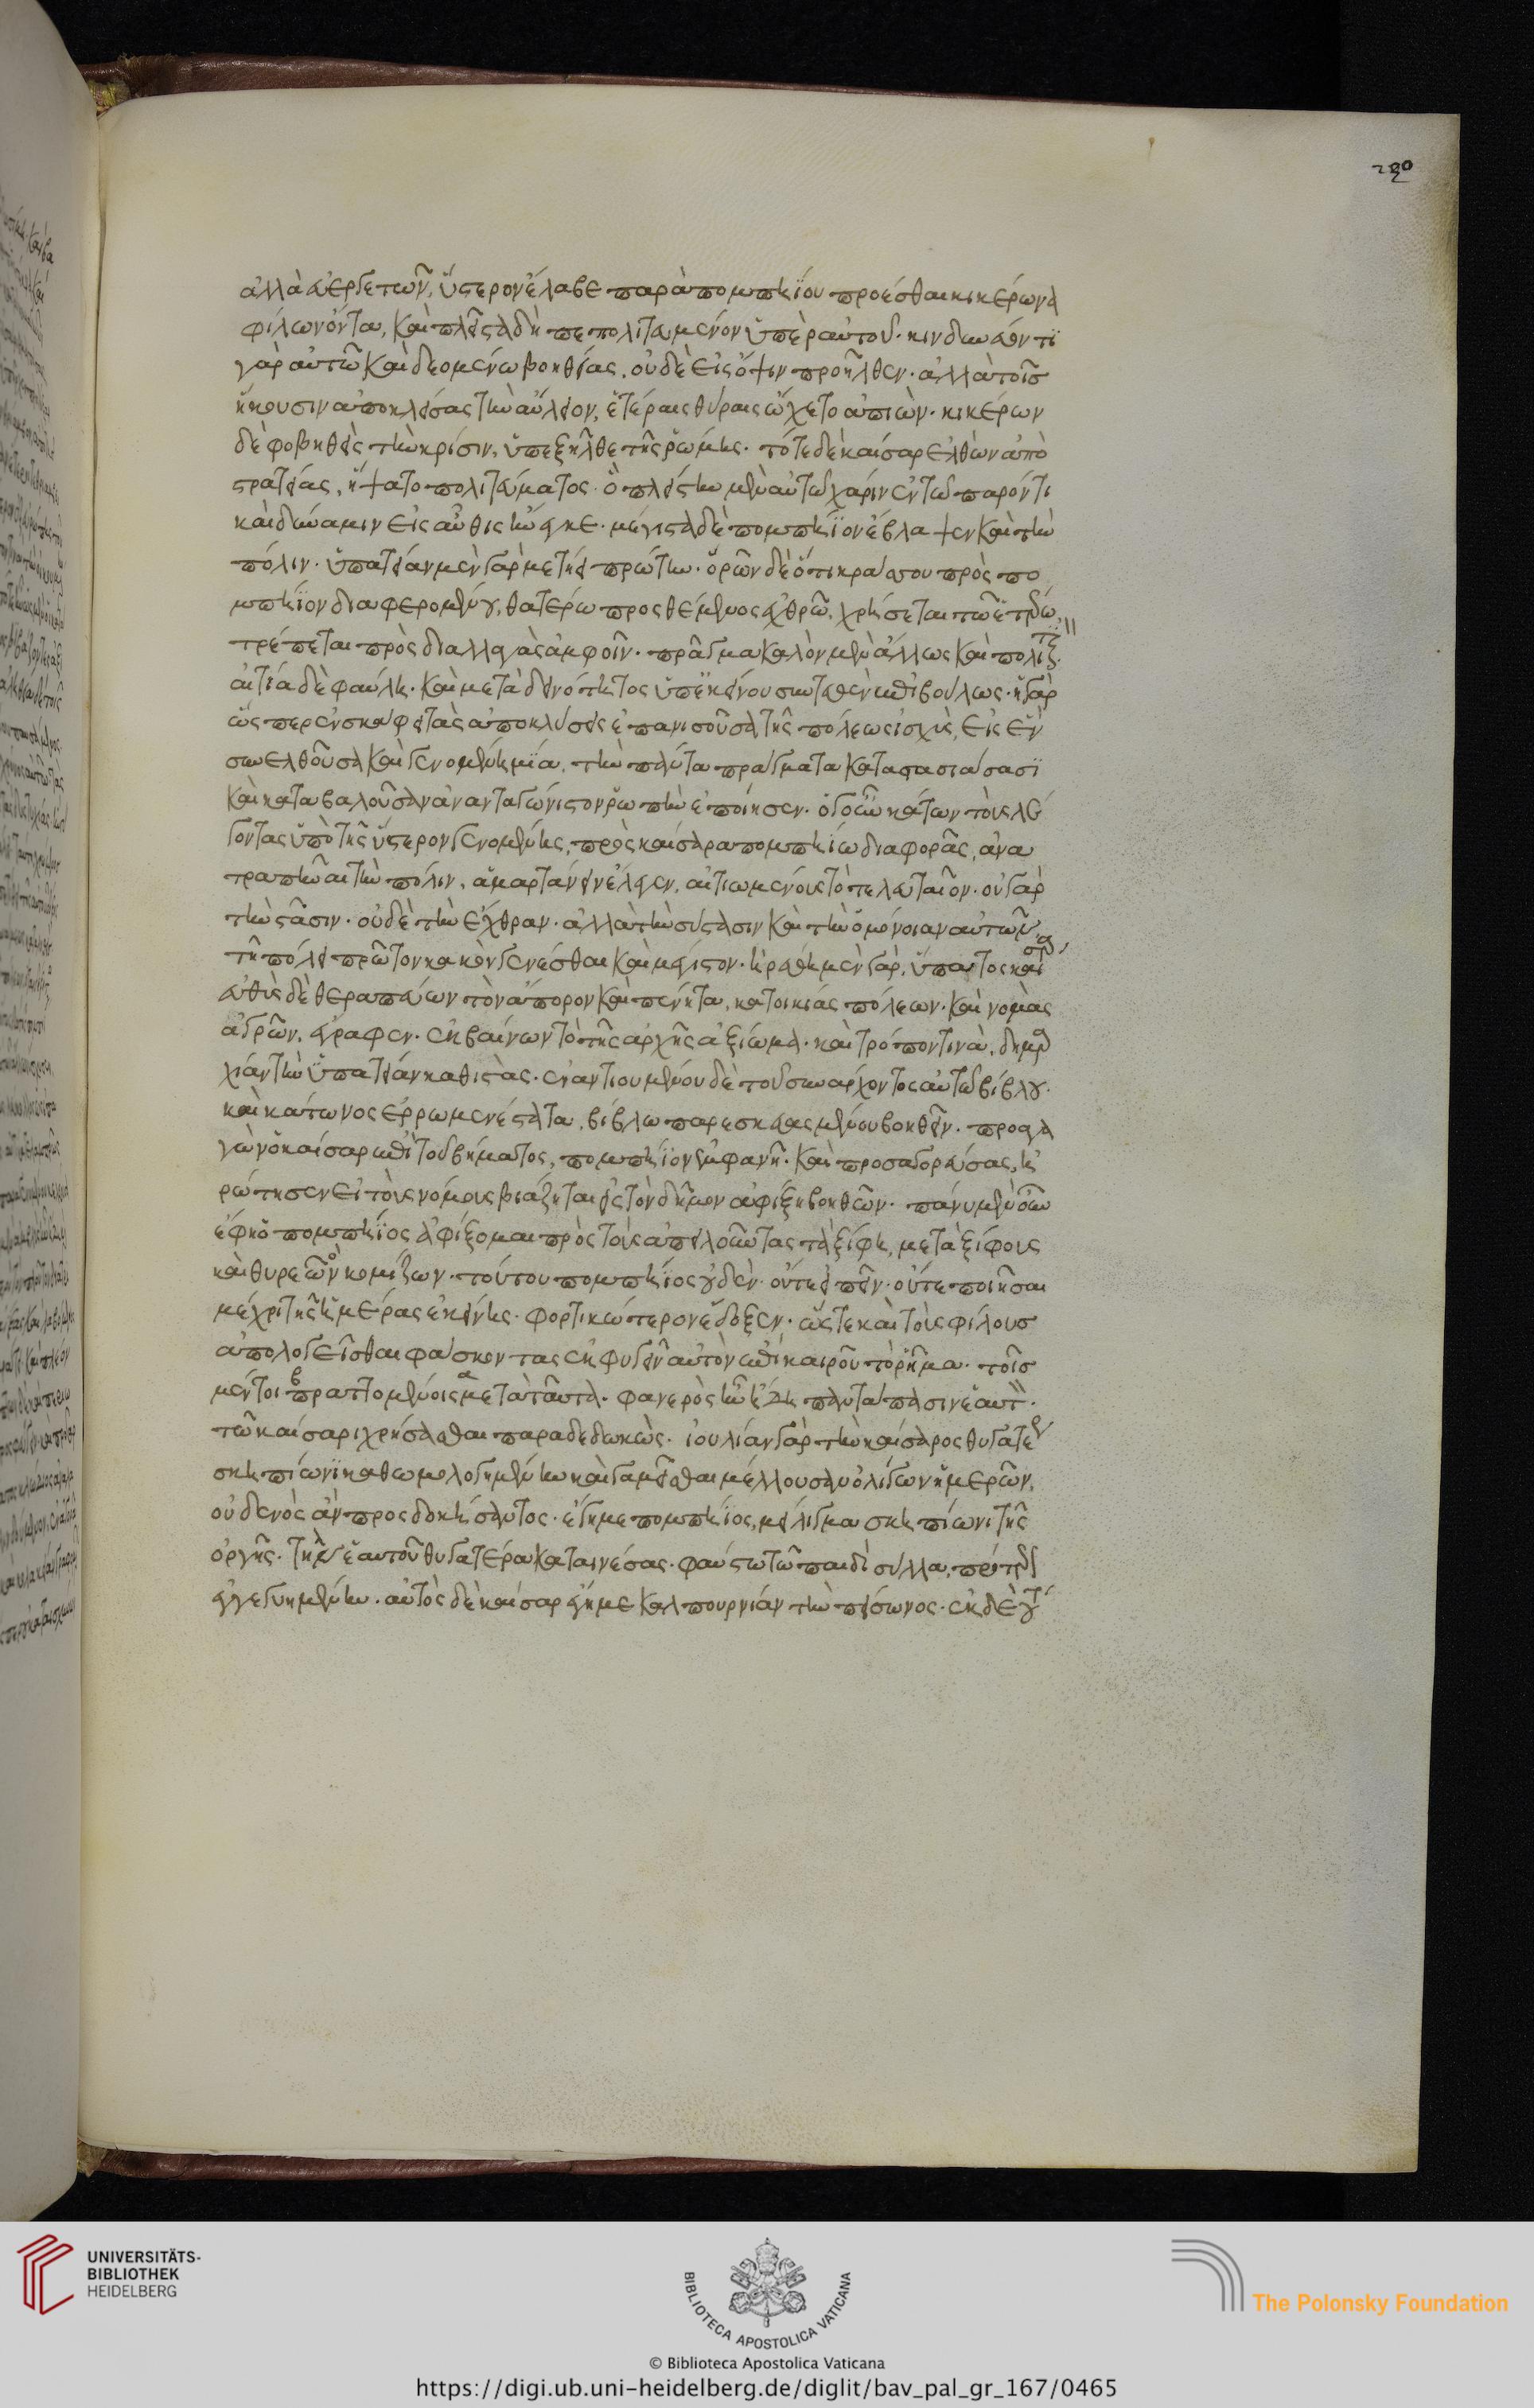 230
ἀλλὰ ἀεργετῶν, ὕστερον ἔλαβε παρὰ πομπηΐου προέσθαι κικέρωνα
φίλων ὄντα, καὶ πλεῖστα δὴ πεπολιτευμένον ὑπὲρ αὐτοῦ. κινδυνεύοντι
γὰρ αὐτῶ καὶ δεομένω βοηθείας, οὐδὲ εἰς ὄψιν προῆλθεν. ἀλλὰ τοῖς
ἥκουσιν ἀποκλείσας τὴν αὔλειον, ἑτέραις θύραις ὤχετο ἀπιών. κικέρων
δὲ φοβηθεὶς τὴν κρίσιν, ὑπεξῆλθε τῆς ῥώμης. τότε δὲ καίσαρ ἐλθὼν ἀπὸ
στρατείας, ἥψατο πολιτεύματος. ὃ πλείστην μὲν αὐτῶ χάριν ἐν τῶ παρόντι
καὶ δύναμιν εἰς αὖθις ἤνεγκε. μέγιστα δὲ πομπήϊον ἔβλαψεν καὶ τὴν
πόλιν. ὑπατείαν μὲν γὰρ μετῄει πρώτην. ὁρῶν δὲ ὅτι κράσσου πρὸς πο
μπήϊον διαφερομένου, θατέρω προσθέμενος ἐχθρῶ, χρήσεται τῶ ἑτέρω,
τρέπεται πρὸς διαλλαγὰς ἀμφοῖν. πρᾶγμα καλὸν μὲν ἄλλως καὶ πολιτι.
αἰτία δὲ φαύλη. καὶ μετὰ δεινότητος ὑπ' ἐκείνου συντεθὲν ἐπιβούλως. ἡ γὰρ
ὥσπερ ἐν σκάφει τὰς ἀποκλύσεις ἐπανισοῦσα τῆς πόλεως ἰσχὺς, εἰς ἓν
συνελθοῦσα καὶ γενομένη μία, τὴν πάντα πράγματα καταστασιάσασϊ
καὶ καταβαλοῦσαν ἀνανταγώνιστον ῥώπὴν ἐποίησεν. ὁ γοῦν κάτων τοὺς λέ
γοντας ὑπὸ τῆς ὕστερον γενομένης, πρὸς καίσαρα πομπηΐω διαφορᾶς, ἀνα
τραπῆναι τὴν πόλιν, ἁμαρτάνειν ἔλεγεν, αἰτιωμένους τὸ τελευταῖον. οὐ γὰρ
τὴν στάσιν. οὐδὲ τὴν ἔχθραν. ἀλλὰ τὴν σύστασιν καὶ τὴν ὁμόνοιαν αὐτῶν,
τῆ πόλει πρῶτον κακὸν γενέσθαι καὶ μέγιστον. ἡρέθη μὲν γὰρ, ὕπατος καῖσαρ,
εὐθὺς δὲ θεραπεύων τὸν ἄπορον καὶ πένητα, κατοικίας πόλεων. καὶ νομὰς
ἀγρῶν, ἔγραφεν. ἐκβαίνων τὸ τῆς ἀρχῆς ἀξίωμα. καὶ τρόπον τινὰ, δημαρ
χίαν τὴν ὑπατείαν καθιστάς. ἐναντιουμένου δὲ τοῦ συνάρχοντος αὐτῶ βίβλου.
καὶ κάτωνος ἐρρωμενέστατα, βίβλω παρεσκευασμένου βοηθεῖν. προαγα
γὼν ὁ καίσαρ ἐπὶ τοῦ βήματος, πομπήϊον ἐμφανῆ. καὶ προσαγορεύσας, ἠ
ρώτησεν εἰ τοὺς νόμους βιάζηται εἰς τὸν δῆμον ἀφίξη βοηθῶν. πάνυ μὲν οὖν
ἔφη ὁ πομπήϊος ἀφίξομαι πρὸς τοὺς ἀπειλοῦντας τὰ ξίφη, μετὰ ξίφους
καὶ θυρεὸν κομίζων. τούτου πομπήϊος οὐδὲν. οὔτε εἰπεῖν. οὔτε ποιῆσαι
μέχρι τῆς ἡμέρας ἐκείνης. φορτικώτερον ἔδοξεν. ὥστε καὶ τοὺς φίλους
ἀπολογεῖσθαι φάσκοντας ἐκφυγεῖν αὐτὸν ἐπὶ καιροῦ τὸ ῥῆμα. τοῖς
μέντοι πραττομένοις μετὰ ταῦτα. φανερὸς ἦν ἤδη παντάπασιν ἑαυτὸν.
τῶ καίσαρι χρήσασθαι παραδεδωκώς. ἰουλίαν γὰρ τὴν καίσαρος θυγατέρα
σκηπίωνϊ καθωμολογημένην καὶ γαμεῖσθαι μέλλουσαν ὀλίγων ἡμερῶν,
οὐδενὸς ἂν προσδοκήσαντος. ἔγημε πομπήϊος, μείλιγμα σκηπίωνι τῆς
ὀργῆς. τὴν ἑαυτοῦ θυγατέρα καταινέσας. φαύστω τῶ παιδὶ σύλλα, πρότερον
ἐγγεγυημένην. αὐτὸς δὲ καίσαρ ἔγημε καλπουρνίαν τὴν πείσωνος. ἐκ δὲ τού
UNIVERSITÄTS-
BIBLIOTHEK
HEIDELBERG
BIBLIOTECA APOSTOLICA VATICANA
The Polonsky Foundation
© Biblioteca Apostolica Vaticana
https://digi.ub.uni-heidelberg.de/diglit/bav_pal_gr_167/0465